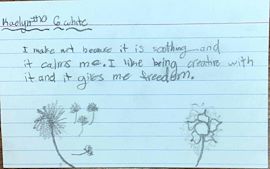 Kaelyn #10 6 white
I make art because it is soothing and
it calms me. I like being creative with
it and it gives me freedom.